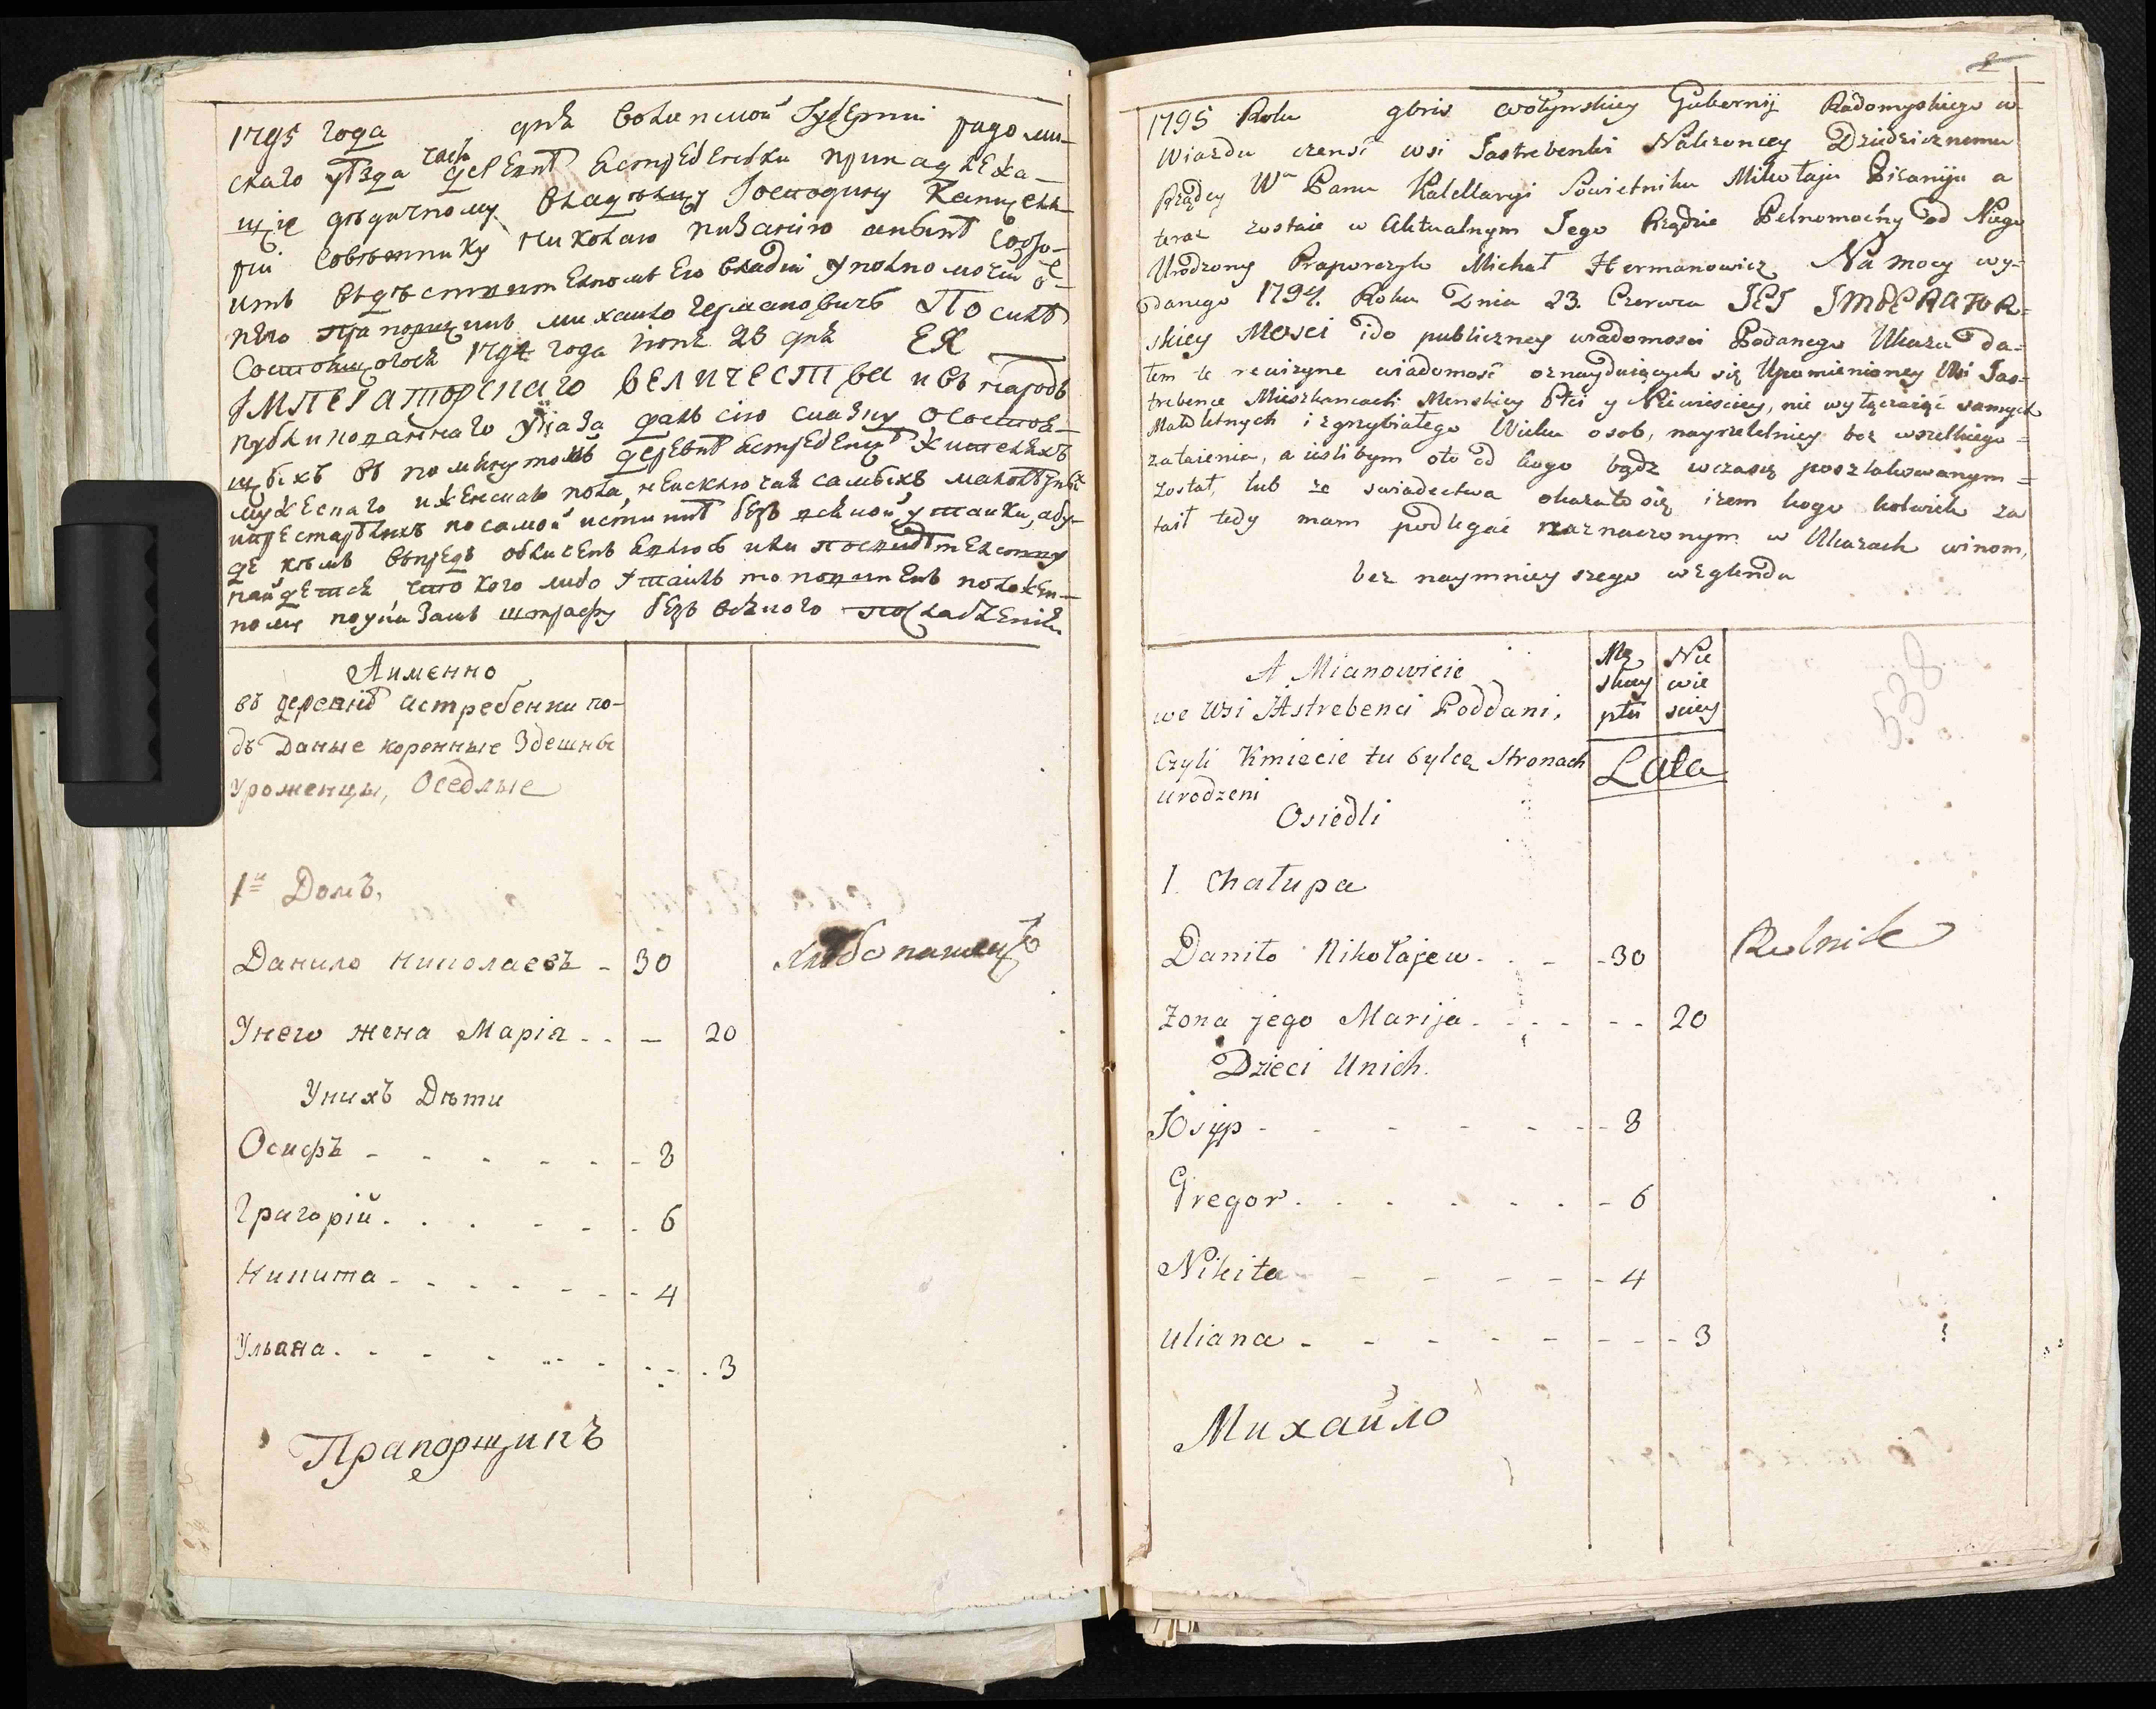 1795 года дня Волынской Губернии радомы-
скаго уѣзда часть деревнѣ Ястребенки принадлежа-
щіе дѣдичному владѣльцу Господину Канцеля-
ріи Совѣтнику Николаю
него прапорщикъ михаило Германовичъ По силѣ
Состоящогося 1794 года июня 23 дня ЕЯ
ІМПЕРАТОРСКАГО ВЕЛИЧЕСТВА и въ народъ
публикованнаго указа даль сію сказку о состоя-
щыхъ въ помянутой деревнѣ Ястребенцѣ жителяхъ
мужескаго и женскаго пола, неисключая самыхъ малолѣтныхъ
и престарѣлыхъ по самой истиннѣ безъ всякой утайки, а бу-
де кѣмъ впредь обличенъ явлюсь или по свидѣтельству
найдется что кого либо утаилъ то повиненъ положен-
ному по указамъ штрафу безъ всякого послабленія
Аименно
въ деревнѣ Астребенки по-
дъ Даные коренные Здешные
Уроженцы, Оседлые
1й Домъ,
Данило Николаевъ - 30 хлѣбопашецъ
Унего жена Марія - - - 20
Унихъ Дѣти
Осифъ - - - - - - 8
Григорій - - - - - - 6
Никита - - - - - - 4
Ульяна - - - - - - 3
Прапорщикъ
2
1795 Roku gbris wołynskiey Gubernij Radomyskiego w
Wiazdu czensć wsi Jastrebenki Należoncey Dziedzicznemu
Rządcy Wu Panu Kalellaryi Sowietniku Mikołaju a
teraz zostaie w Aktualnym Jego Rządzie Pelnomocny od Niego
Urodzony Praporczyk Michał Hermanowicz Na mocy wy-
danego 1794. Roku Dnia 23. Czerwca JEJ IMPERATOR=
skiey Mosci ido publiczney wiadomosci Podanego Ukazu da=
iem te rewizyne wiadomość oznayduiących się Upomienioney Wsi Jas=
trebence Mieszkancach Menskiey Płci y Niewieściey, nie wyłączaiąc samych
Małoletnych i zgrzybiałego Wieku osob, nayrzetelniey bez wszelkiego =
zataienia, a iesli bym oto od kogo bądz wczasię poszlakowanym =
został, lub ze swiadectwa okazało się izem kogo kolwiek za
taił tedy mam podlegać naznaczonym w Ukazach winom,
bez naymnieyszego wzglendu
A Mianowicie Mę Nie
skiey wie
we Wsi JAstrebenci Poddani, płci sciey
Czyli Kmiecie tu bylcą Stronach Lata
urodzeni
Osiedli
538
1. Chałupa
Daniło Nikołajew - - - 30 Rolnik
Zona jego Marija - - - - - 20
Dzieci Unich.
Josyp - - - - - - - 8
Gregor - - - - - - 6
Nikita - - - - - 4
Uliana - - - - - - - - 3
Михайло